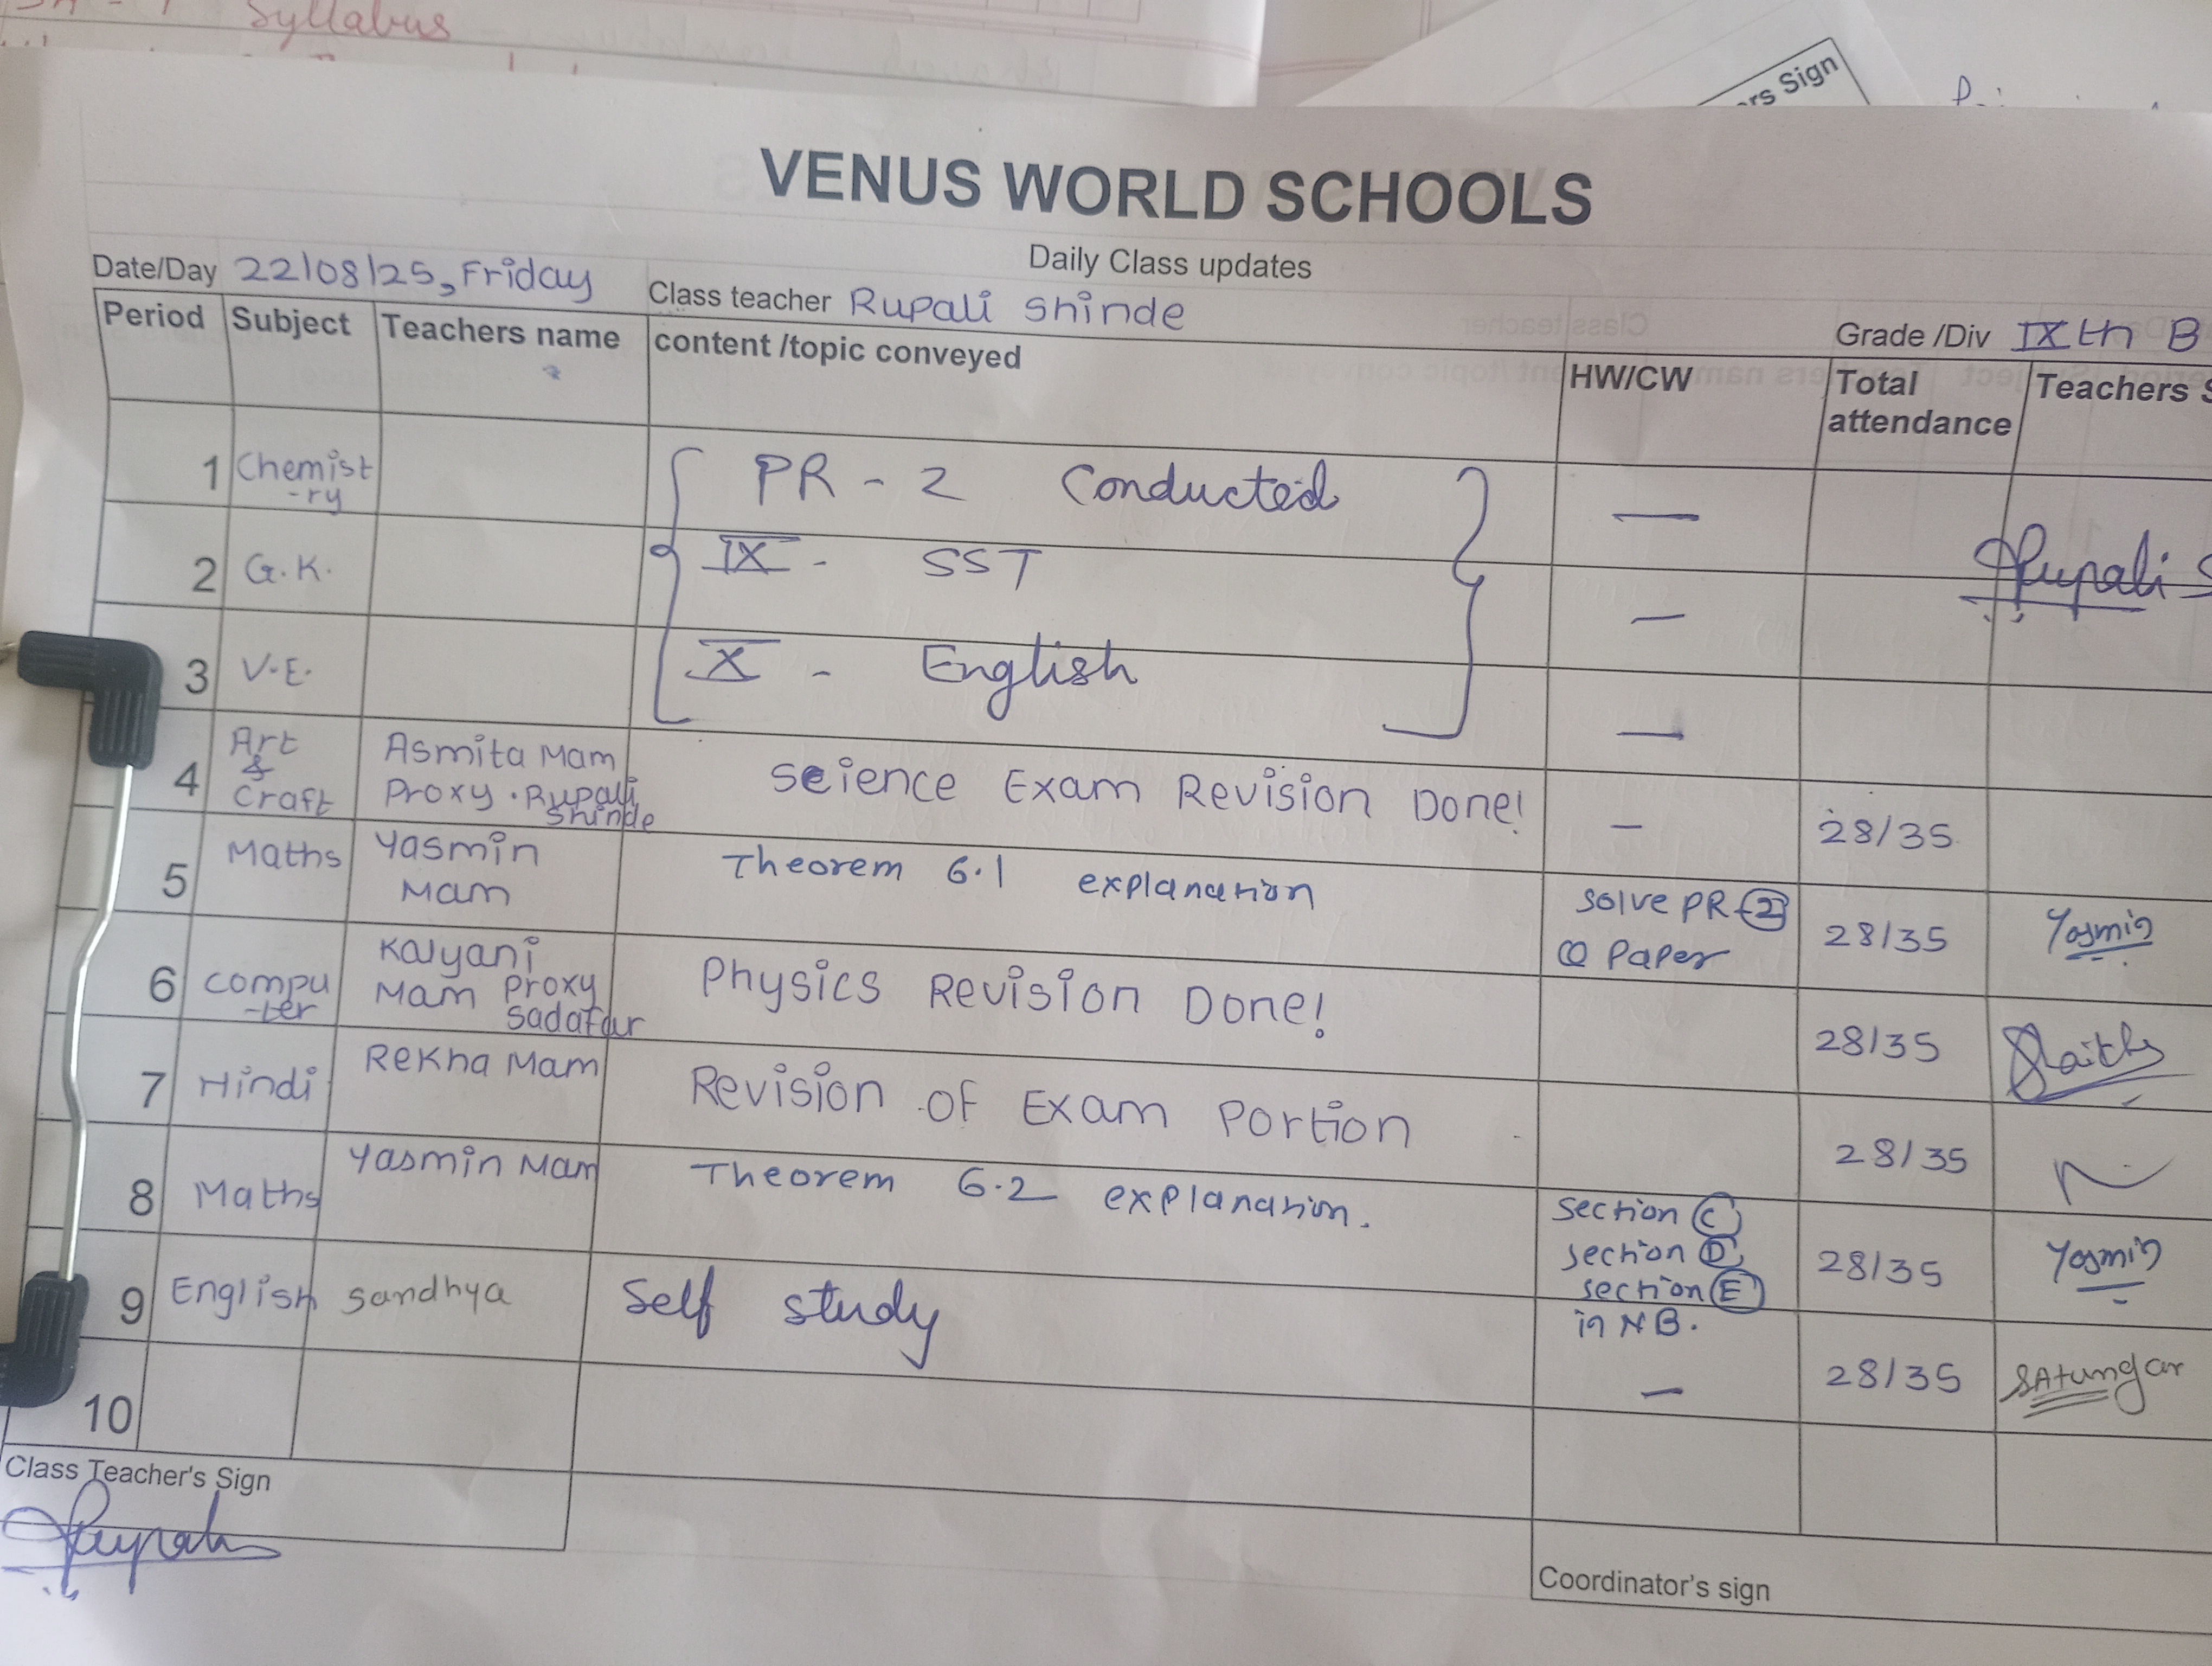 Syllabus
rs Sign
VENUS WORLD SCHOOLS
Daily Class updates
Date/Day 22/08/25, Friday
Class teacher Rupali Shinde
Grade /Div IXth B
Period Subject Teachers name content /topic conveyed HW/CW Total attendance Teachers S
1 Chemist-ry PR - 2 Conducted —
Rupali S
2 G.K. IX - SST —
3 V.E. X - English —
4 Art & Craft Asmita Mam Proxy . Rupali Shinde Science Exam Revision Done! - 28/35
5 Maths Yasmin Mam Theorem 6.1 explanation Solve PR-2 Q Paper 28/35 Yasmin
6 Compu-ter Kalyani Mam Proxy Sadafar Physics Revision Done! 28/35
7 Hindi Rekha Mam Revision of Exam Portion 28/35
8 Maths Yasmin Mam Theorem 6.2 explanation. Section C section D section E in NB. 28/35 Yasmin
9 English Sandhya Self study — 28/35 SAtungar
10
Class Teacher's Sign
Rupali
Coordinator's sign